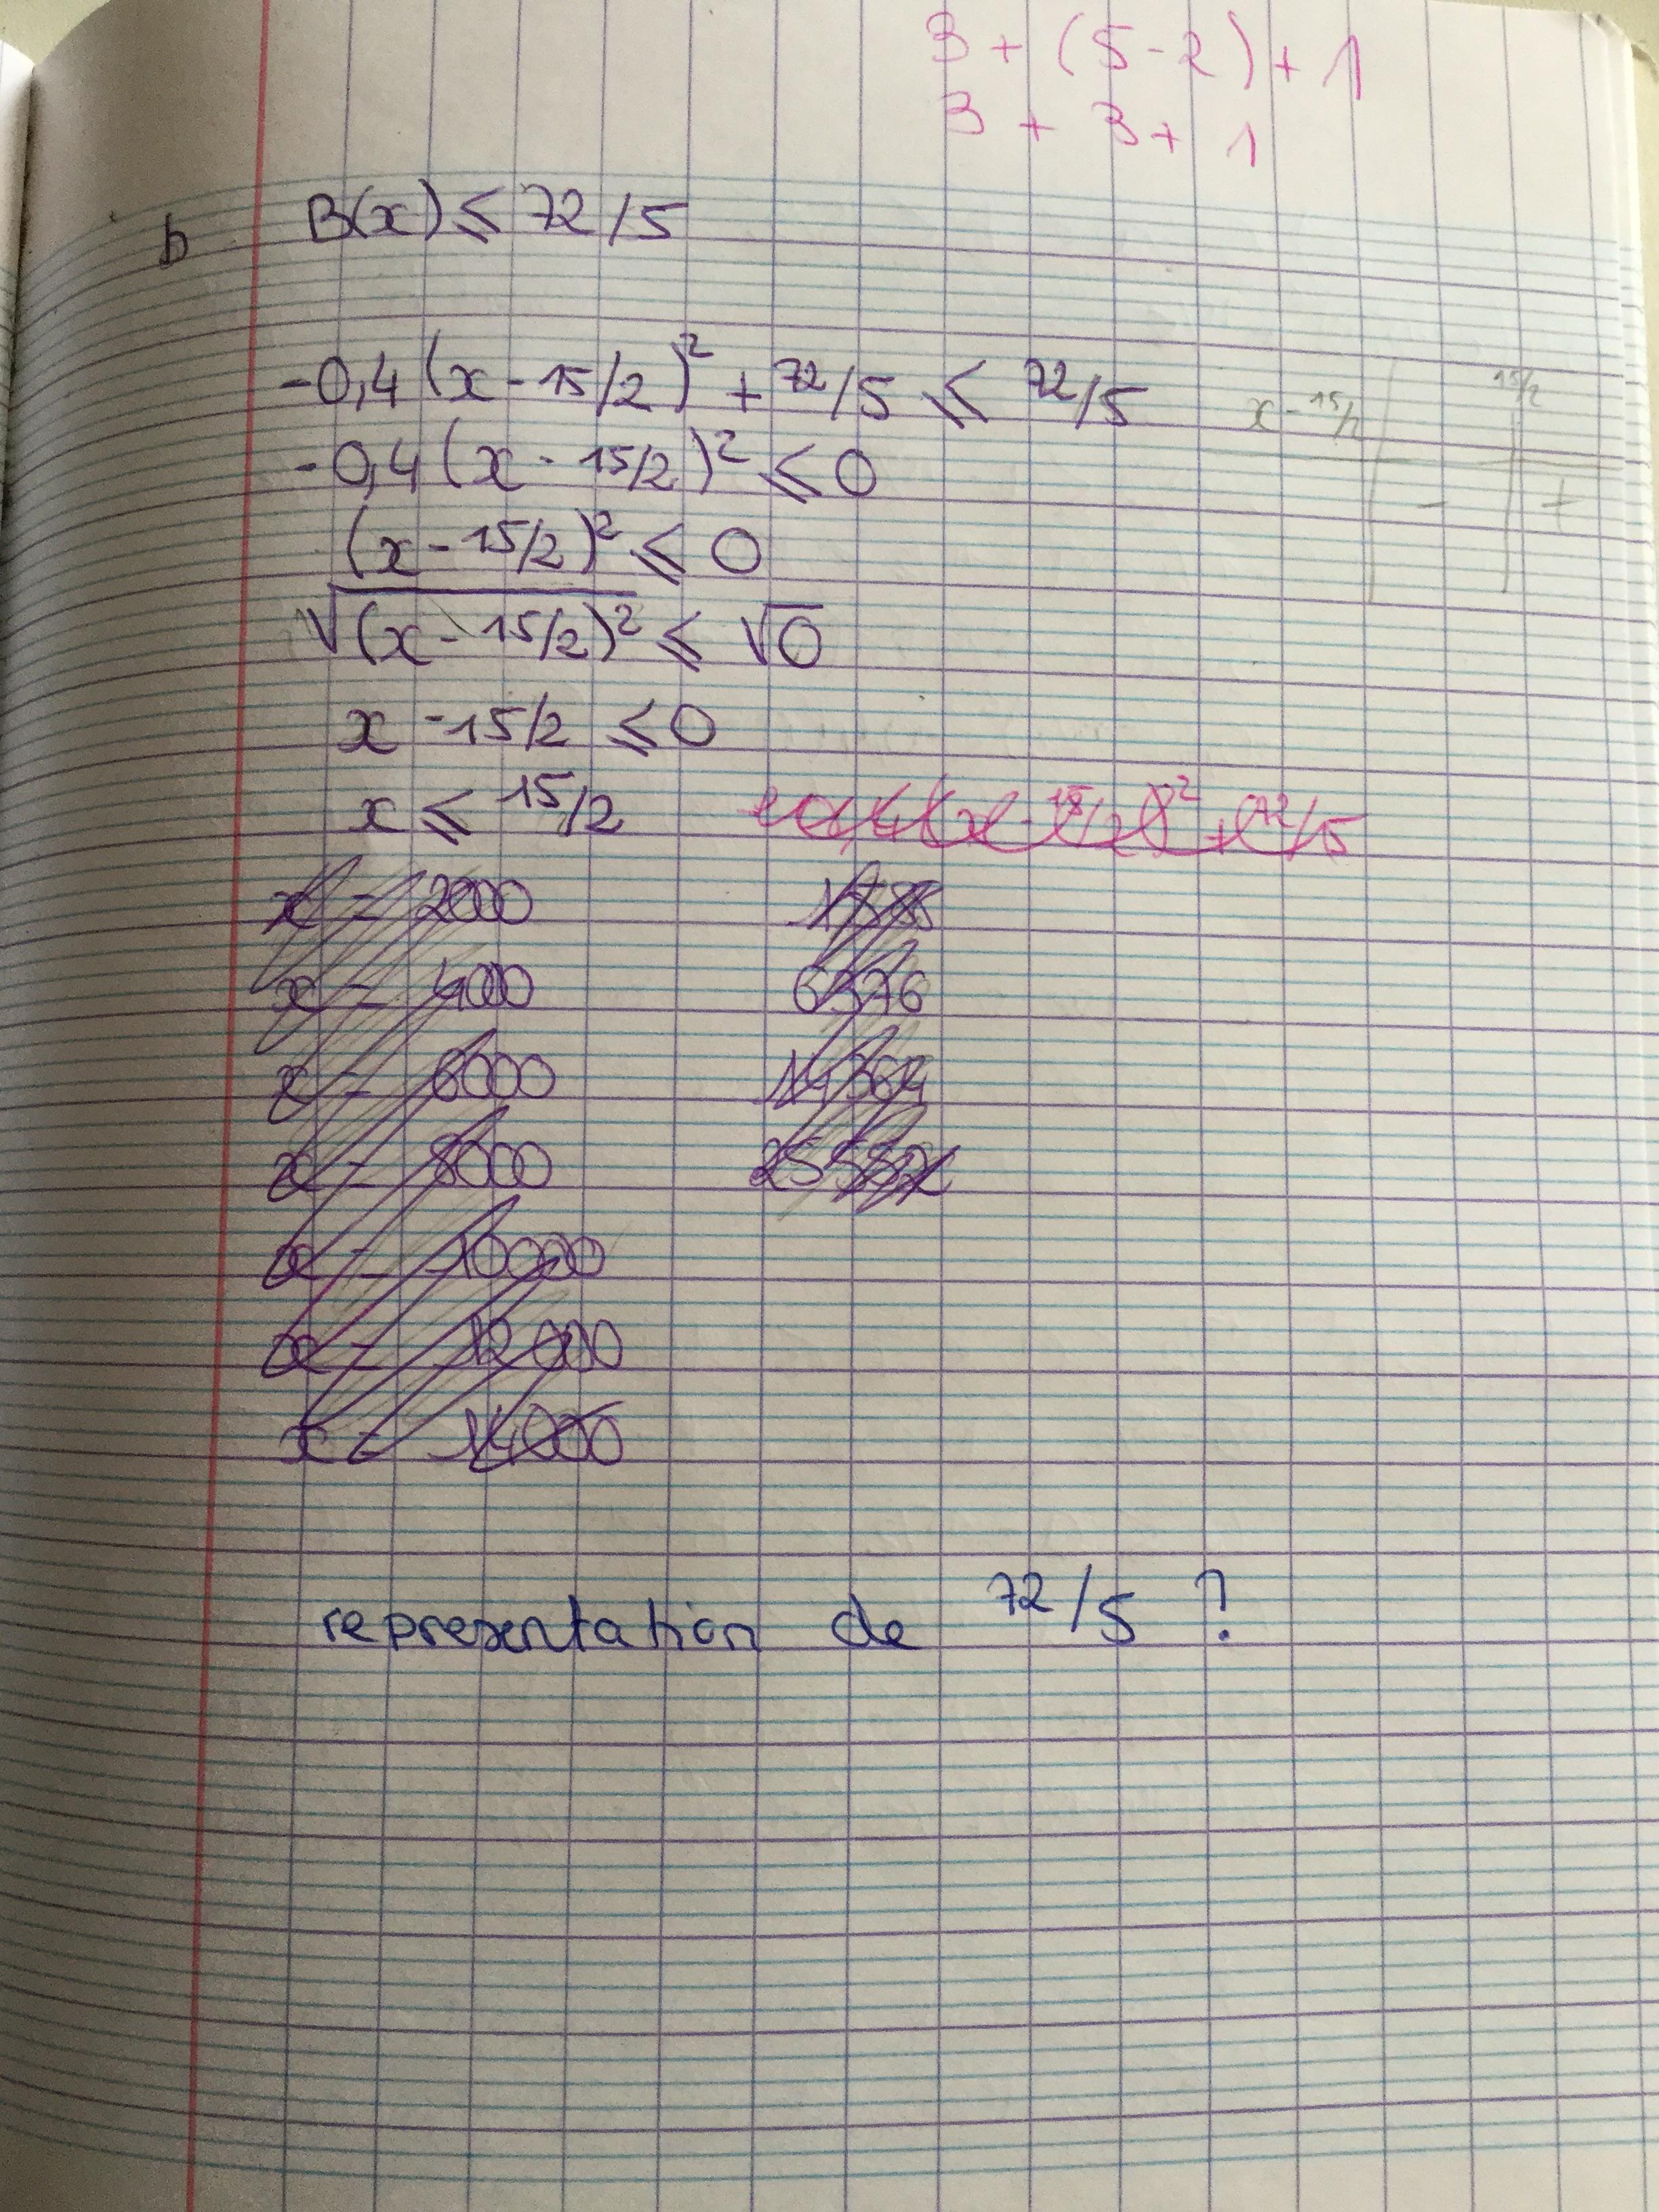 3 + (5-2) + 1
3 + 3 + 1
b B(x) ⩽ 72/5
-0,4 (x - 15/2)² + 72/5 ⩽ 72/5
x - 15/2 15/2
-0,4 (x - 15/2)² ⩽ 0
- +
(x - 15/2)² ⩽ 0
√(x - 15/2)² ⩽ √0
x - 15/2 ⩽ 0
x ⩽ 15/2
x = 2000
x = 4000 6376
x = 6000 14364
x = 8000 25552
x = 10000
x = 12000
x = 14000
representation de 72/5 ?